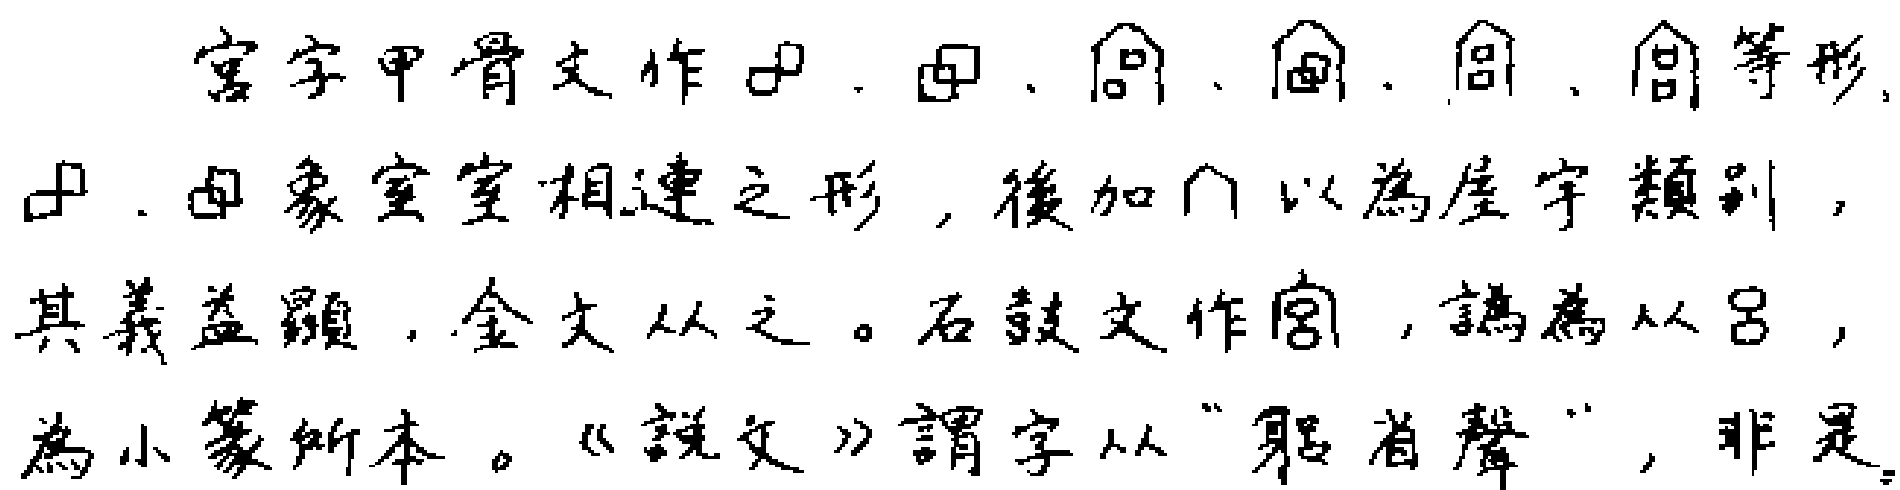 宮字甲骨文作、、、、、等形,
、象室室相連之形，後加宀以為屋宇類別，
其義益顯，金文从之。石鼓文作宮，譌為从呂，
為小篆所本。《說文》謂字从“躳省聲”，非是。